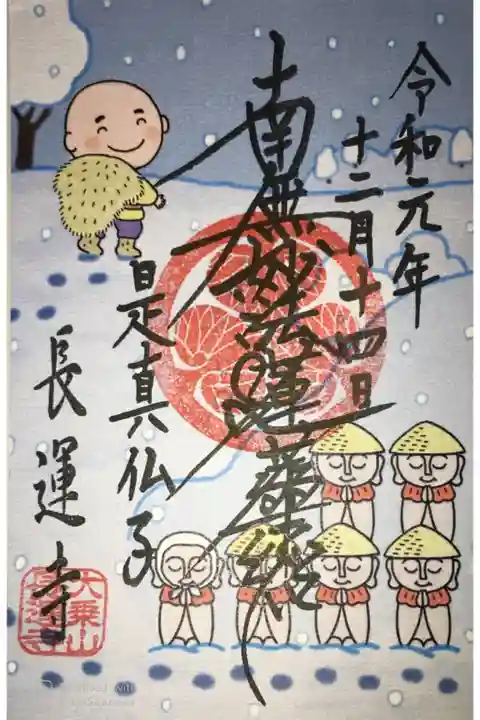 令和元年
十二月十四日
南無妙法蓮華経
是真仏子
長運寺
大乗山
長運寺